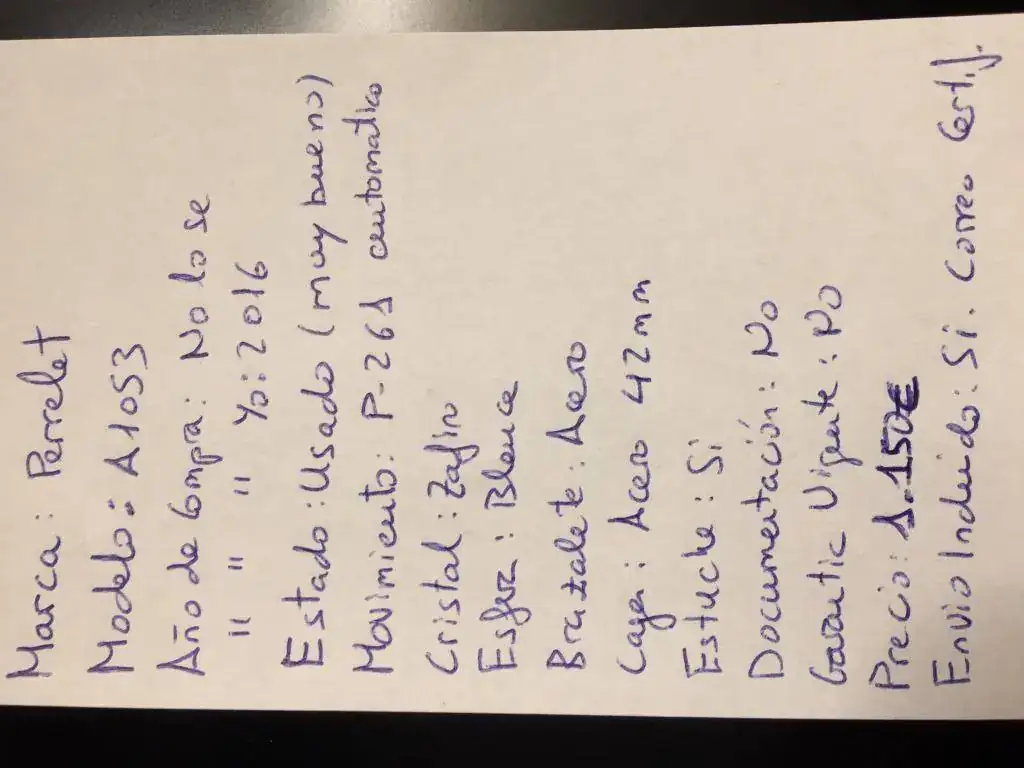 Marca: Perrelet
Modelo: A1053
Año de Compra: No lo se
" " " Yo: 2016
Estado: Usado (muy bueno)
Movimiento: P-261 automatico
Cristal: Zafiro
Esfera: Blanca
Brazalete: Acero
Caja: Acero 42mm
Estuche: Si
Documentación: No
Garantia Vigente: No
Precio: 1.150€
Envio Incluido: Si. Correo Certif.